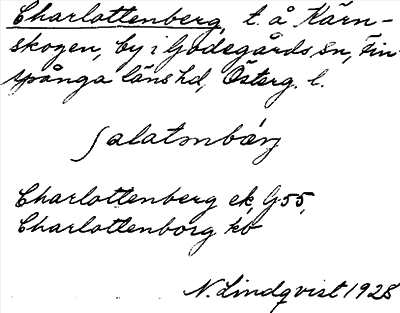 Charlottenberg, t. å Kärn-
skogen, by i Godegårds sn, Fin-
spånga läns hd, Österg. l.
ʃalatɔnbærj
Charlottenberg ek, G55,
Charlottenborg kb
N. Lindqvist 1928